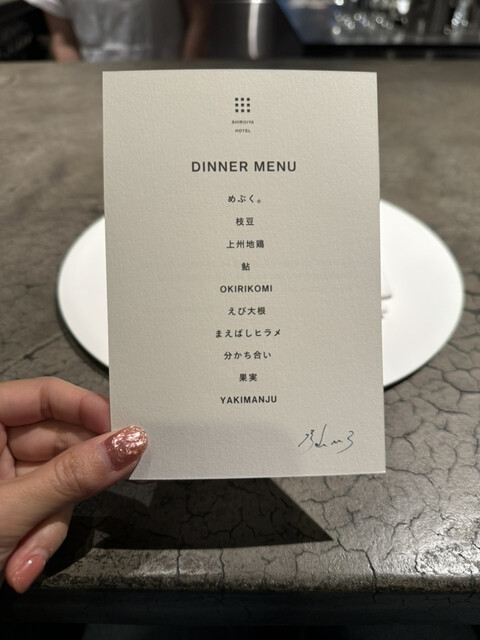 SHIROIYA
HOTEL
DINNER MENU
めぶく。
枝豆
上州地鶏
鮎
OKIRIKOMI
えび大根
まえばしヒラメ
分かち合い
果実
YAKIMANJU